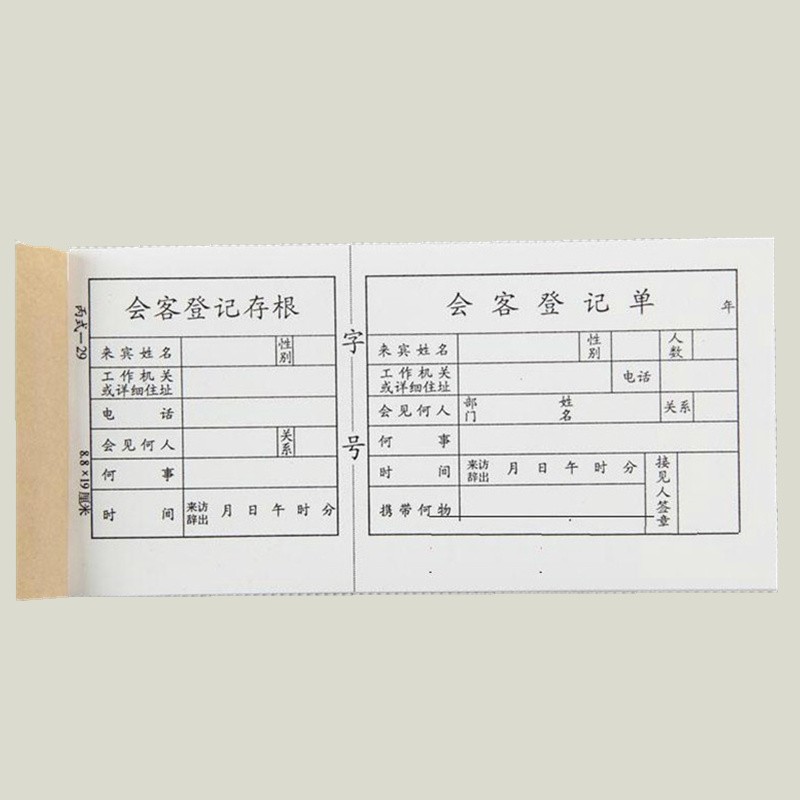 丙式—29
8.8×19厘米
会客登记存根
来宾姓名 性别
工作机关
或详细住址
电话
会见何人 关系
何事
时间 来访 辞出 月日午时分
字
号
会客登记单
年
来宾姓名 性别 人数
工作机关
或详细住址 电话
会见何人 部门 姓名 关系
何事
时间 来访 辞出 月日午时分 接见人签章
携带何物